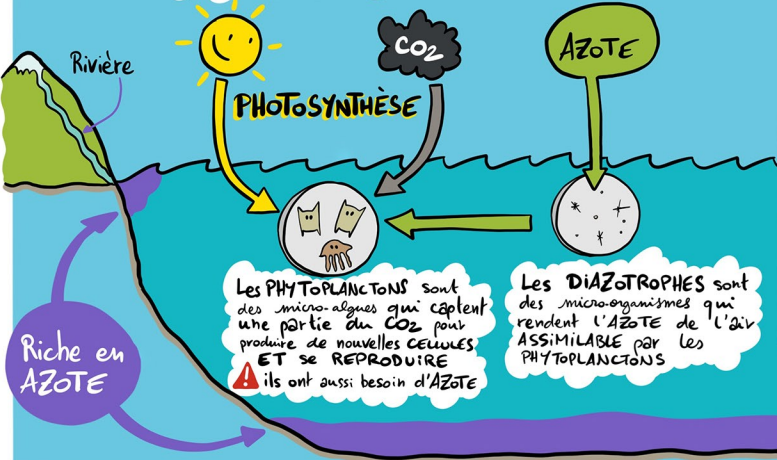 Rivière
CO2
AZOTE
PHOTOSYNTHÈSE
Les PHYTOPLANCTONS sont
des micro-algues qui captent
une partie du CO2 pour
produire de nouvelles CELLULES
ET se REPRODUIRE
ils ont aussi besoin d'AZOTE
Les DIAZOTROPHES sont
des micro-organismes qui
rendent l'AZOTE de l'air
ASSIMILABLE par les
PHYTOPLANCTONS
Riche en
AZOTE